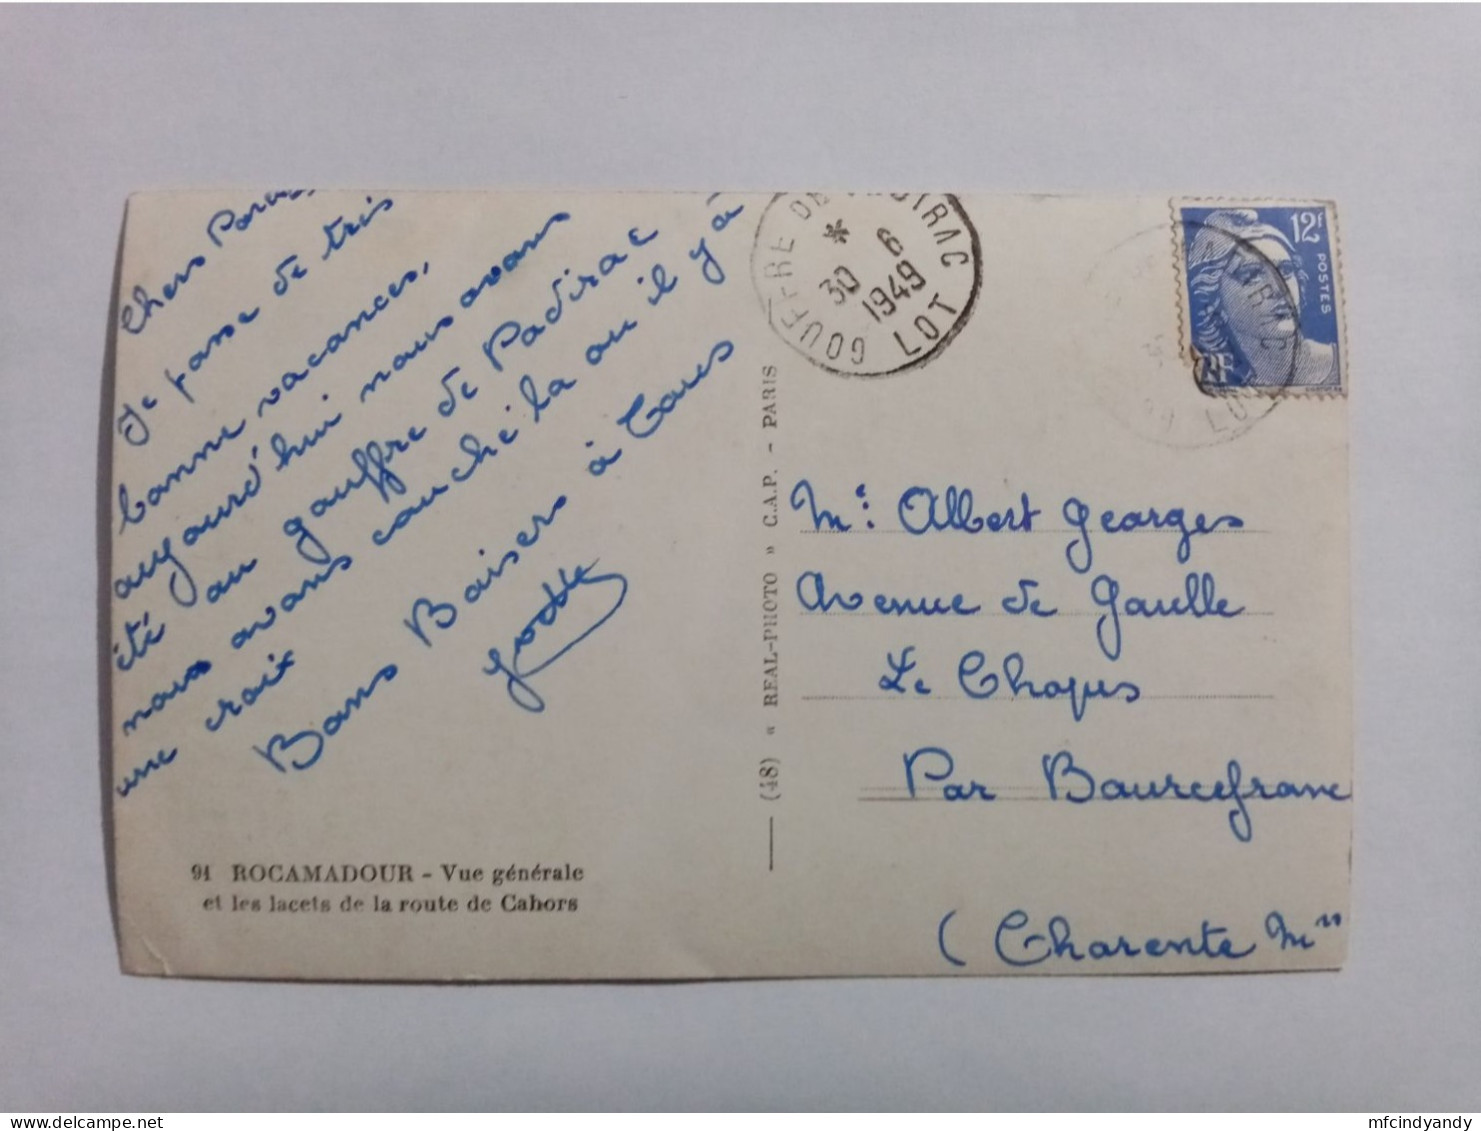 Chers Parents,
Je passe de très
bonne vacances,
aujourd'hui nous avons
été au gouffre de Padirac
nous avons couché la ou il y à
une croix
Bons Baisers à Tous
91 ROCAMADOUR - Vue générale
et les lacets de la route de Cahors
(48) « REAL-PHOTO » C.A.P. - PARIS
GOUFFRE DE PADIRAC
*
30 6
1949
LOT
12F
POSTES
RF
LOT
Mr Albert Georges
Avenue de Gaulle
Le Chapus
Par Bourcefranc
(Charente Mme
mfcindyandy